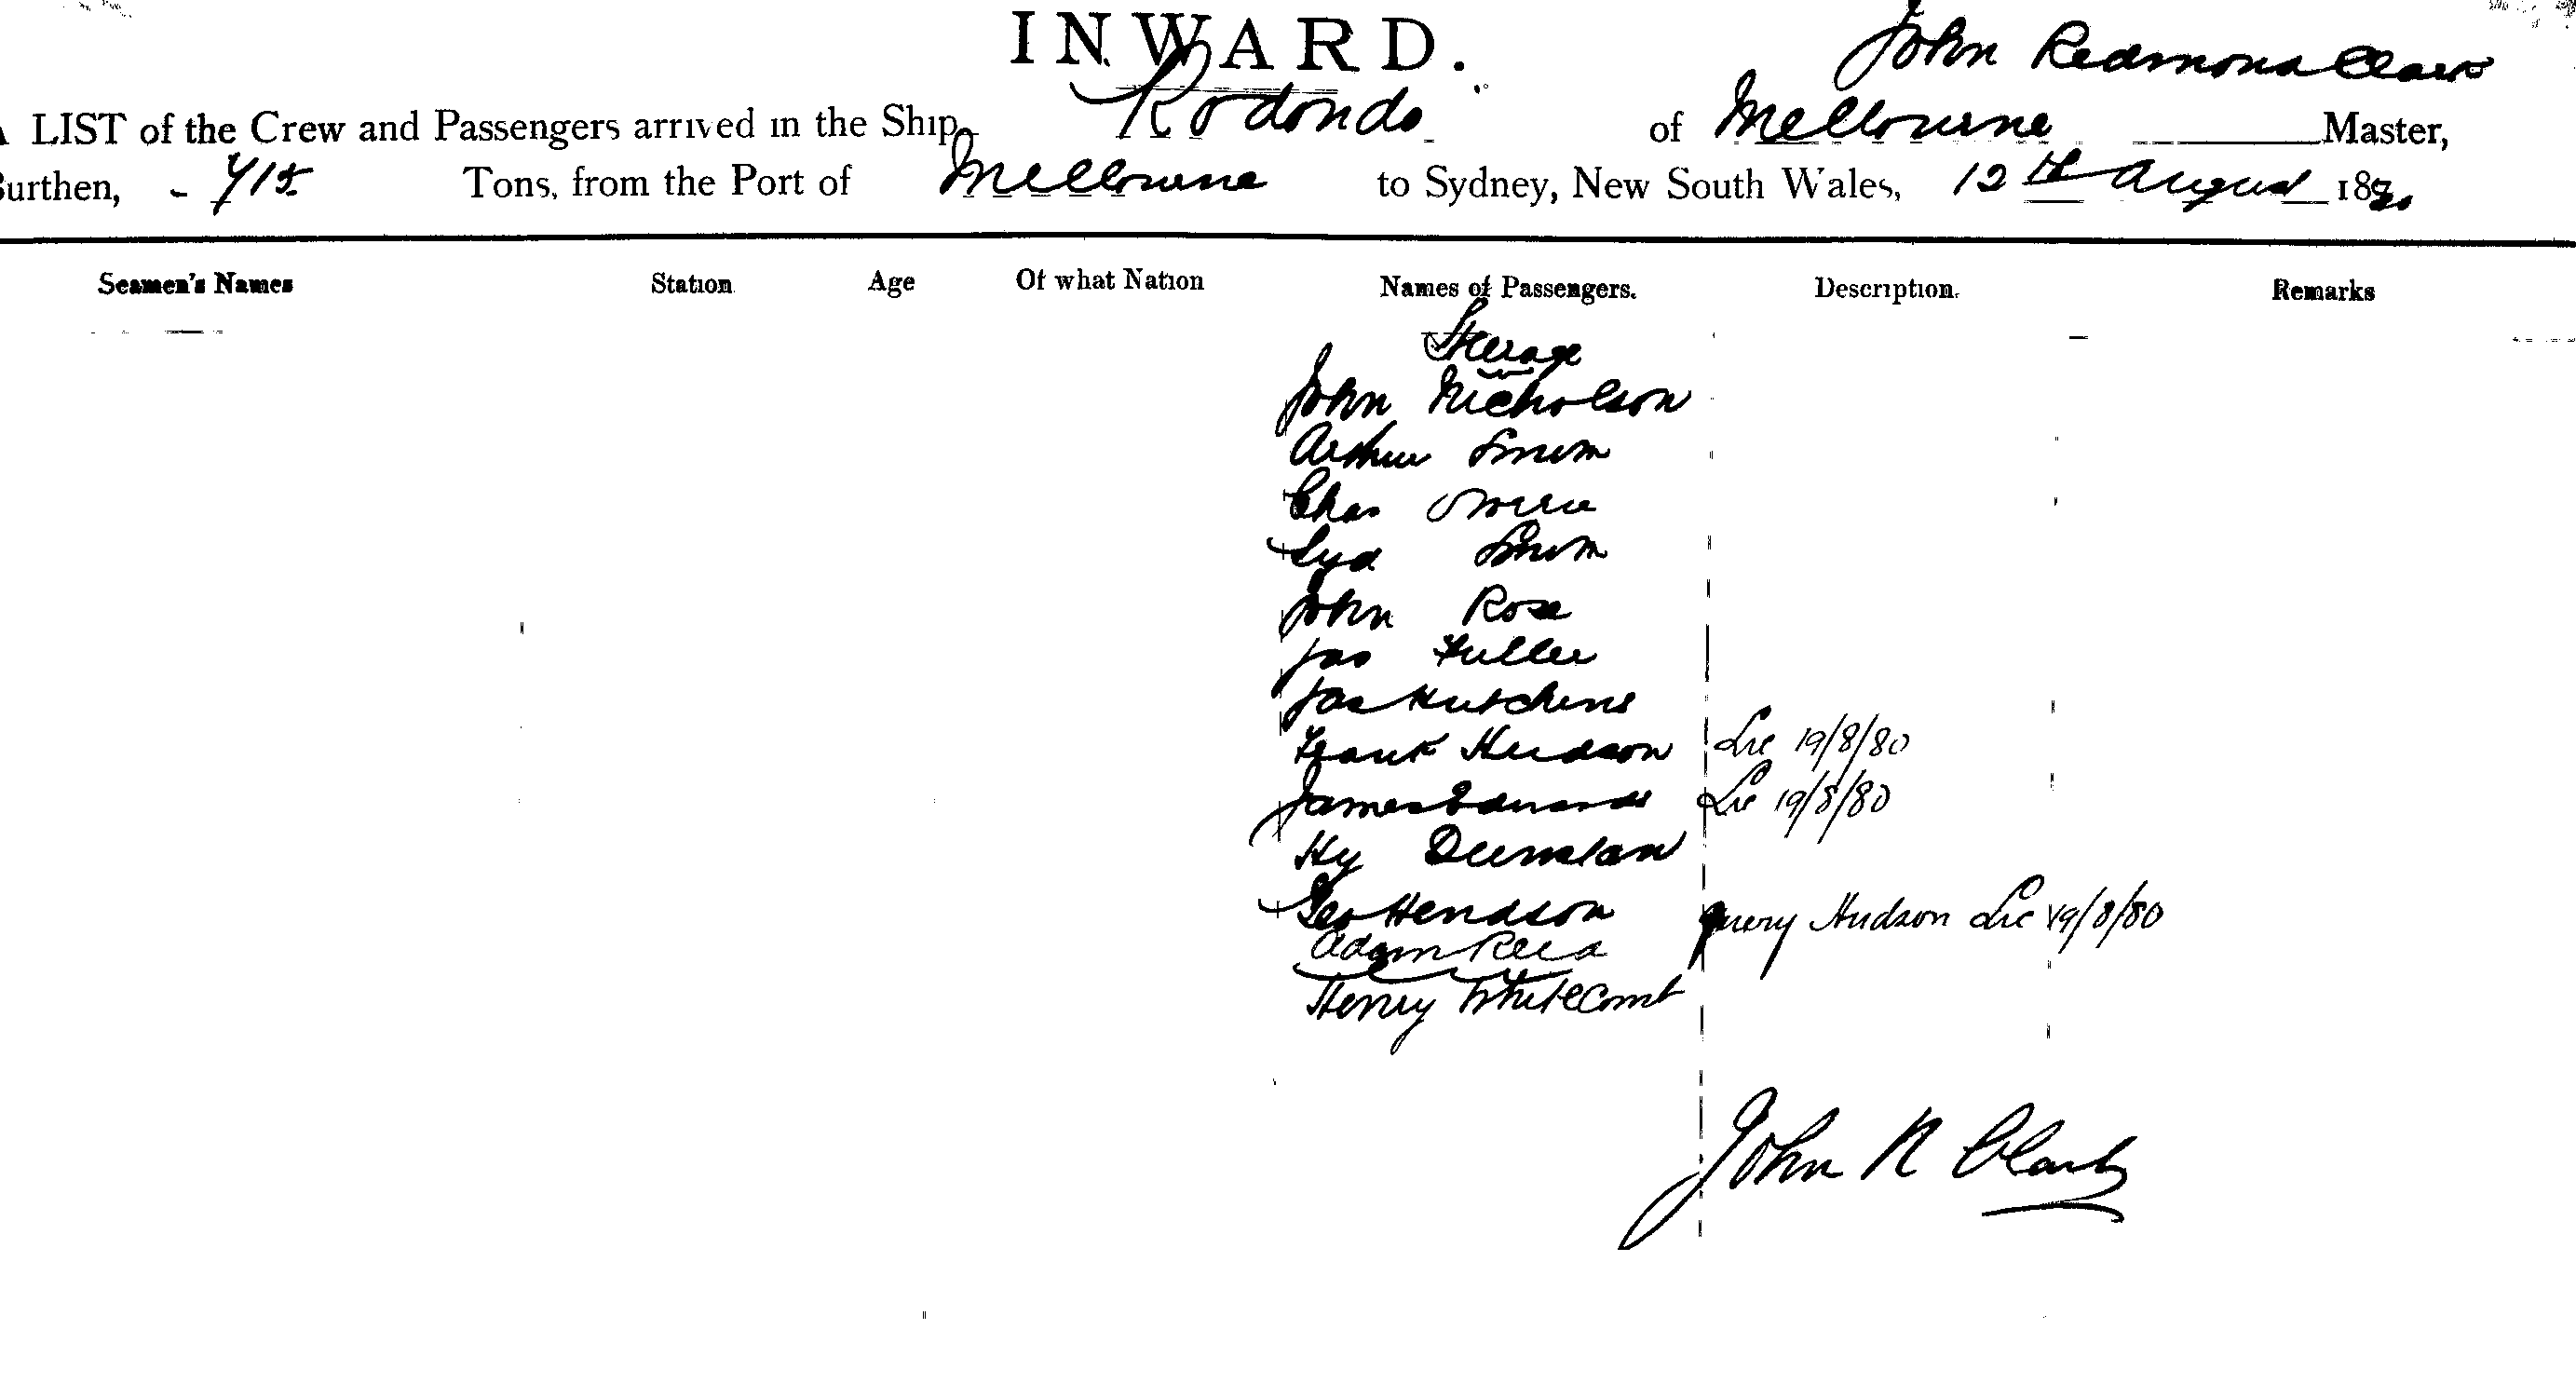 INWARD.
John Redmond Clark
A LIST of the Crew and Passengers arrived in the Ship Rodondo of Melbourne Master,
Burthen, 715 Tons, from the Port of Melbourne to Sydney, New South Wales, 12th August 1880
Seamen's Names Station Age Of what Nation Names of Passengers. Description. Remarks
Steerage
John Nicholson
Arthur
Chas
Syd
John Rose
Jas Fuller
Jas Hutchins
Frank Hudson Lic 19/8/80
James Edwards Lic 19/8/80
Hy Dunstan
Geo Hendson query Hudson Lic 19/8/80
Adam
Henry Whitecomb
John R Clark